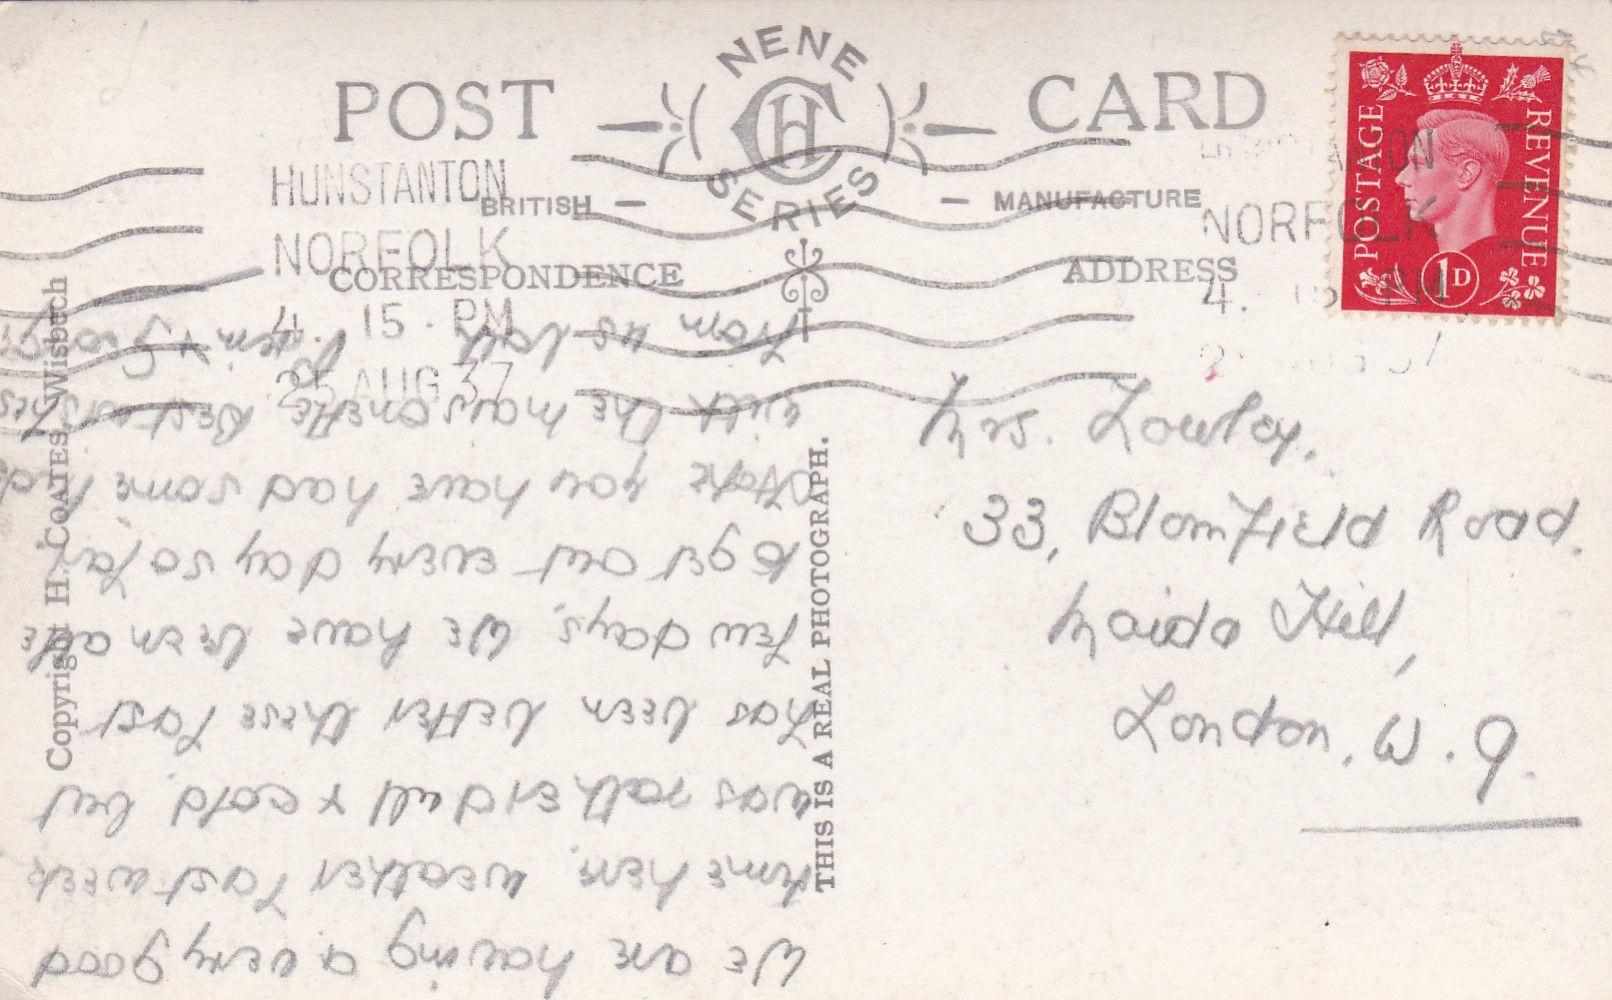 POST CARD
NENE
CH
SERIES
BRITISH — — MANUFACTURE
CORRESPONDENCE
ADDRESS
HUNSTANTON
NORFOLK
4. 15 · PM
25 AUG 37
NORFOLK
POSTAGE
REVENUE
1D
Copyright H. COATES, Wisbech
THIS IS A REAL PHOTOGRAPH.
Mrs. Lowley.
33, Blomfield Road.
Maida Hill,
London. W. 9.
We are having a very good
time here. weather last week
was rather dull & cold, but
has been better these last
few days, we have been able
to get out every day so far
Hope you have had some
with the Best wishes
from us both